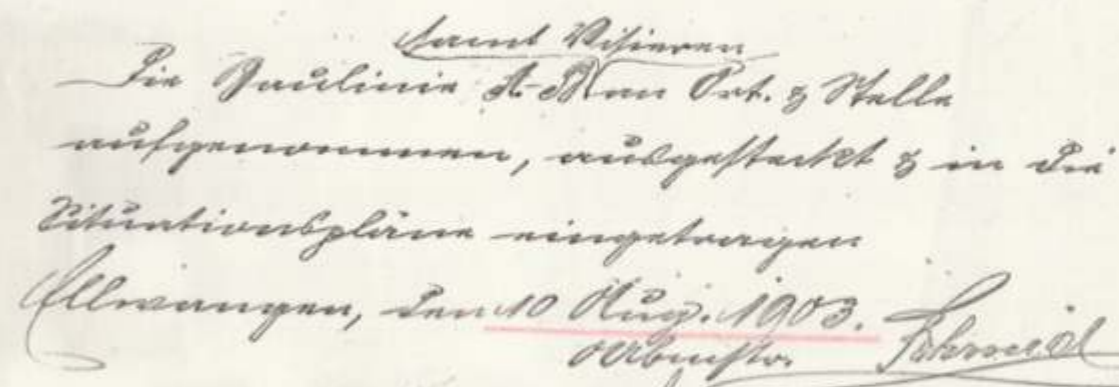 samt Visieren
Die Baulinie A-B an Ort. & Stelle
aufgenommen, ausgesteckt & in die
Situationspläne eingetragen
Ellwangen, den 10 Aug. 1903.
Schmid